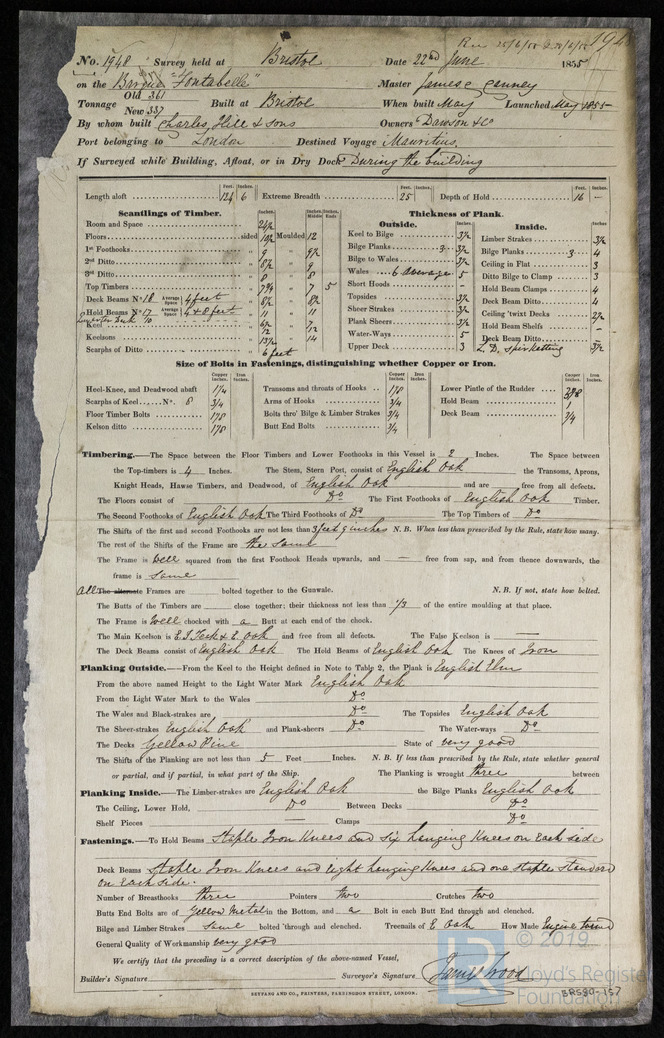 194
No. 1948 Survey held at Bristol Date 22nd June 1855
on the Barque "Fontabelle" Master James Canney
Tonnage Old 361 New 337 Built at Bristol When built May Launched May 1855
By whom built Charles Hill & Sons Owners Dawson & Co
Port belonging to London Destined Voyage Mauritius
If Surveyed while Building, Afloat, or in Dry Dock During the building
Feet. Inches. Feet. Inches. Feet. Inches.
Length aloft 124 6 Extreme Breadth 25 Depth of Hold 16 —
Scantlings of Timber. Thickness of Plank.
Outside. Inside.
Room and Space
Floors sided Moulded 12
1st Foothooks " 9 "
2nd Ditto " 8½ " 9
3rd Ditto " 8 " 8
Top Timbers " " 7 5
Deck Beams No 18 Average Space 4 feet " 8½ " 8½
Hold Beams No 17 Average Space 4 & 8 feet " 11 " 11
Keel " 12 " 12
Keelsons " 13½ " 14
Scarphs of Ditto 6 feet
Keel to Bilge 3½
Bilge Planks 3 3½
Bilge to Wales 3½
Wales 6 average 5
Short Hoods -
Topsides 3½
Sheer Strakes 3½
Plank Sheers 3½
Water-Ways 5
Upper Deck 3
Limber Strakes 3½
Bilge Planks 3 4
Ceiling in Flat 3
Ditto Bilge to Clamp 3
Hold Beam Clamps 4
Deck Beam Ditto 4
Ceiling 'twixt Decks 2½
Hold Beam Shelfs -
Deck Beam Ditto -
L. D. Spirketting 3½
Size of Bolts in Fastenings, distinguishing whether Copper or Iron.
Copper Inches. Iron Inches. Copper Inches. Iron Inches. Copper Inches. Iron Inches.
Heel-Knee, and Deadwood abaft 1¼
Scarphs of Keel No. 8 3/4
Floor Timber Bolts 1 1/8
Kelson ditto 1 1/8
Transoms and throats of Hooks 1 1/8
Arms of Hooks 3/4
Bolts thro' Bilge & Limber Strakes 3/4
Butt End Bolts 3/4
Lower Pintle of the Rudder
Hold Beam 1
Deck Beam 3/4
Timbering.—The Space between the Floor Timbers and Lower Foothooks in this Vessel is 2 Inches. The Space between
the Top-timbers is 4 Inches. The Stem, Stern Post, consist of English Oak the Transoms, Aprons,
Knight Heads, Hawse Timbers, and Deadwood, of English Oak and are free from all defects.
The Floors consist of Do The First Foothooks of English Oak Timber.
The Second Foothooks of English Oak The Third Foothooks of Do The Top Timbers of Do
The Shifts of the first and second Foothooks are not less than 3 feet 9 inches N. B. When less than prescribed by the Rule, state how many.
The rest of the Shifts of the Frame are the same
The Frame is Well squared from the first Foothook Heads upwards, and — free from sap, and from thence downwards, the
frame is Same
All The alternate Frames are bolted together to the Gunwale. N. B. If not, state how bolted.
The Butts of the Timbers are close together; their thickness not less than 1/3 of the entire moulding at that place.
The Frame is Well chocked with a Butt at each end of the chock.
The Main Keelson is E I Teak & E Oak and free from all defects. The False Keelson is —
The Deck Beams consist of English Oak The Hold Beams of English Oak The Knees of Iron
Planking Outside.—From the Keel to the Height defined in Note to Table 2, the Plank is English Elm
From the above named Height to the Light Water Mark English Oak
From the Light Water Mark to the Wales Do
The Wales and Black-strakes are Do The Topsides English Oak
The Sheer-strakes English Oak and Plank-sheers Do The Water-ways Do
The Decks Yellow Pine State of very good
The Shifts of the Planking are not less than 5 Feet Inches. N. B. If less than prescribed by the Rule, state whether general
or partial, and if partial, in what part of the Ship. The Planking is wrought three between
Planking Inside.—The Limber-strakes are English Oak the Bilge Planks English Oak
The Ceiling, Lower Hold, Do Between Decks Do
Shelf Pieces — Clamps Do
Fastenings.—To Hold Beams Staple Iron Knees and Six hanging Knees on Each side
Deck Beams Staple Iron Knees and Eight hanging Knees and one Staple Standard
on Each side.
Number of Breasthooks three Pointers two Crutches two
Butts End Bolts are of Yellow Metal in the Bottom, and a Bolt in each Butt End through and clenched.
Bilge and Limber Strakes Same bolted through and clenched. Treenails of E Oak How Made Engine turned
General Quality of Workmanship very good
We certify that the preceding is a correct description of the above-named Vessel,
Builder's Signature Surveyor's Signature James Wood
SEYFANG AND CO., PRINTERS, FARRINGDON STREET, LONDON.
BRS80-157
© 2019
LR Lloyd's Register
Foundation